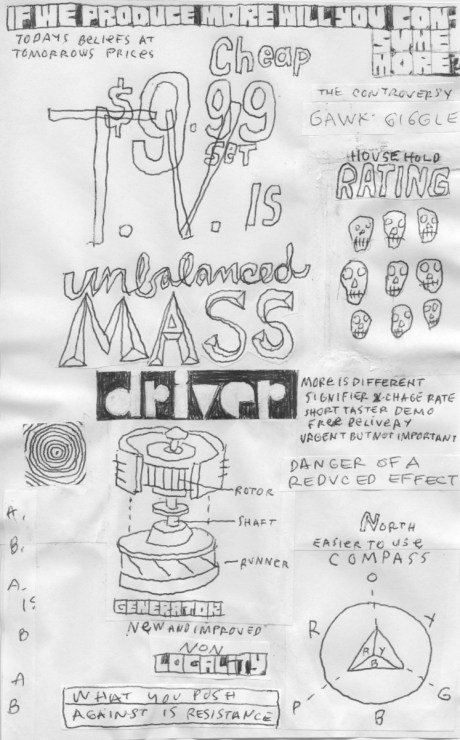 IF WE PRODUCE MORE WILL YOU CON-
SUME
MORE?
TODAYS BELIEFS AT
TOMORROWS PRICES
Cheap
$9.99
SET
T.V. IS
unbalanced
MASS
driver
THE CONTROVERSY
GAWK GIGGLE
HOUSEHOLD
RATING
MORE IS DIFFERENT
SIGNIFIER X-CHAGE RATE
SHORT TASTER DEMO
FREE DELIVERY
URGENT BUT NOT IMPORTANT
DANGER OF A
REDUCED EFFECT
ROTOR
SHAFT
RUNNER
GENERATOR
NEW AND IMPROVED
NON
LOCALITY
WHAT YOU PUSH
AGAINST IS RESISTANCE
A.
B.
A.
IS
B
A
B
NORTH
EASIER TO USE
COMPASS
O
R
Y
R Y
B
P
G
B